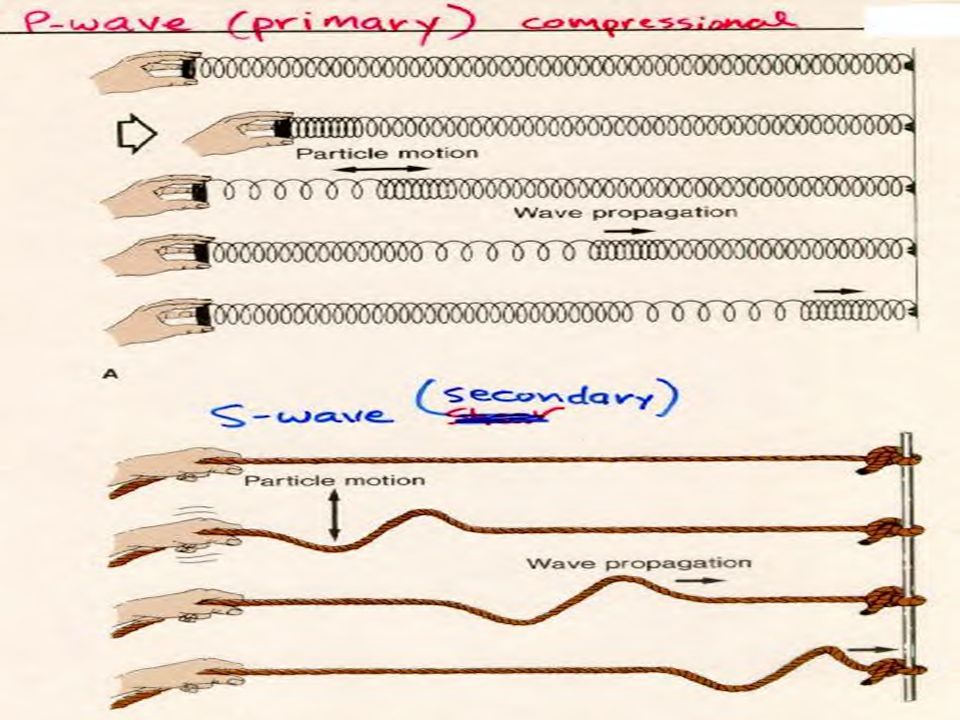 P-wave (primary) compressional
Particle motion
Wave propagation
A
S-wave (secondary)
Particle motion
Wave propagation